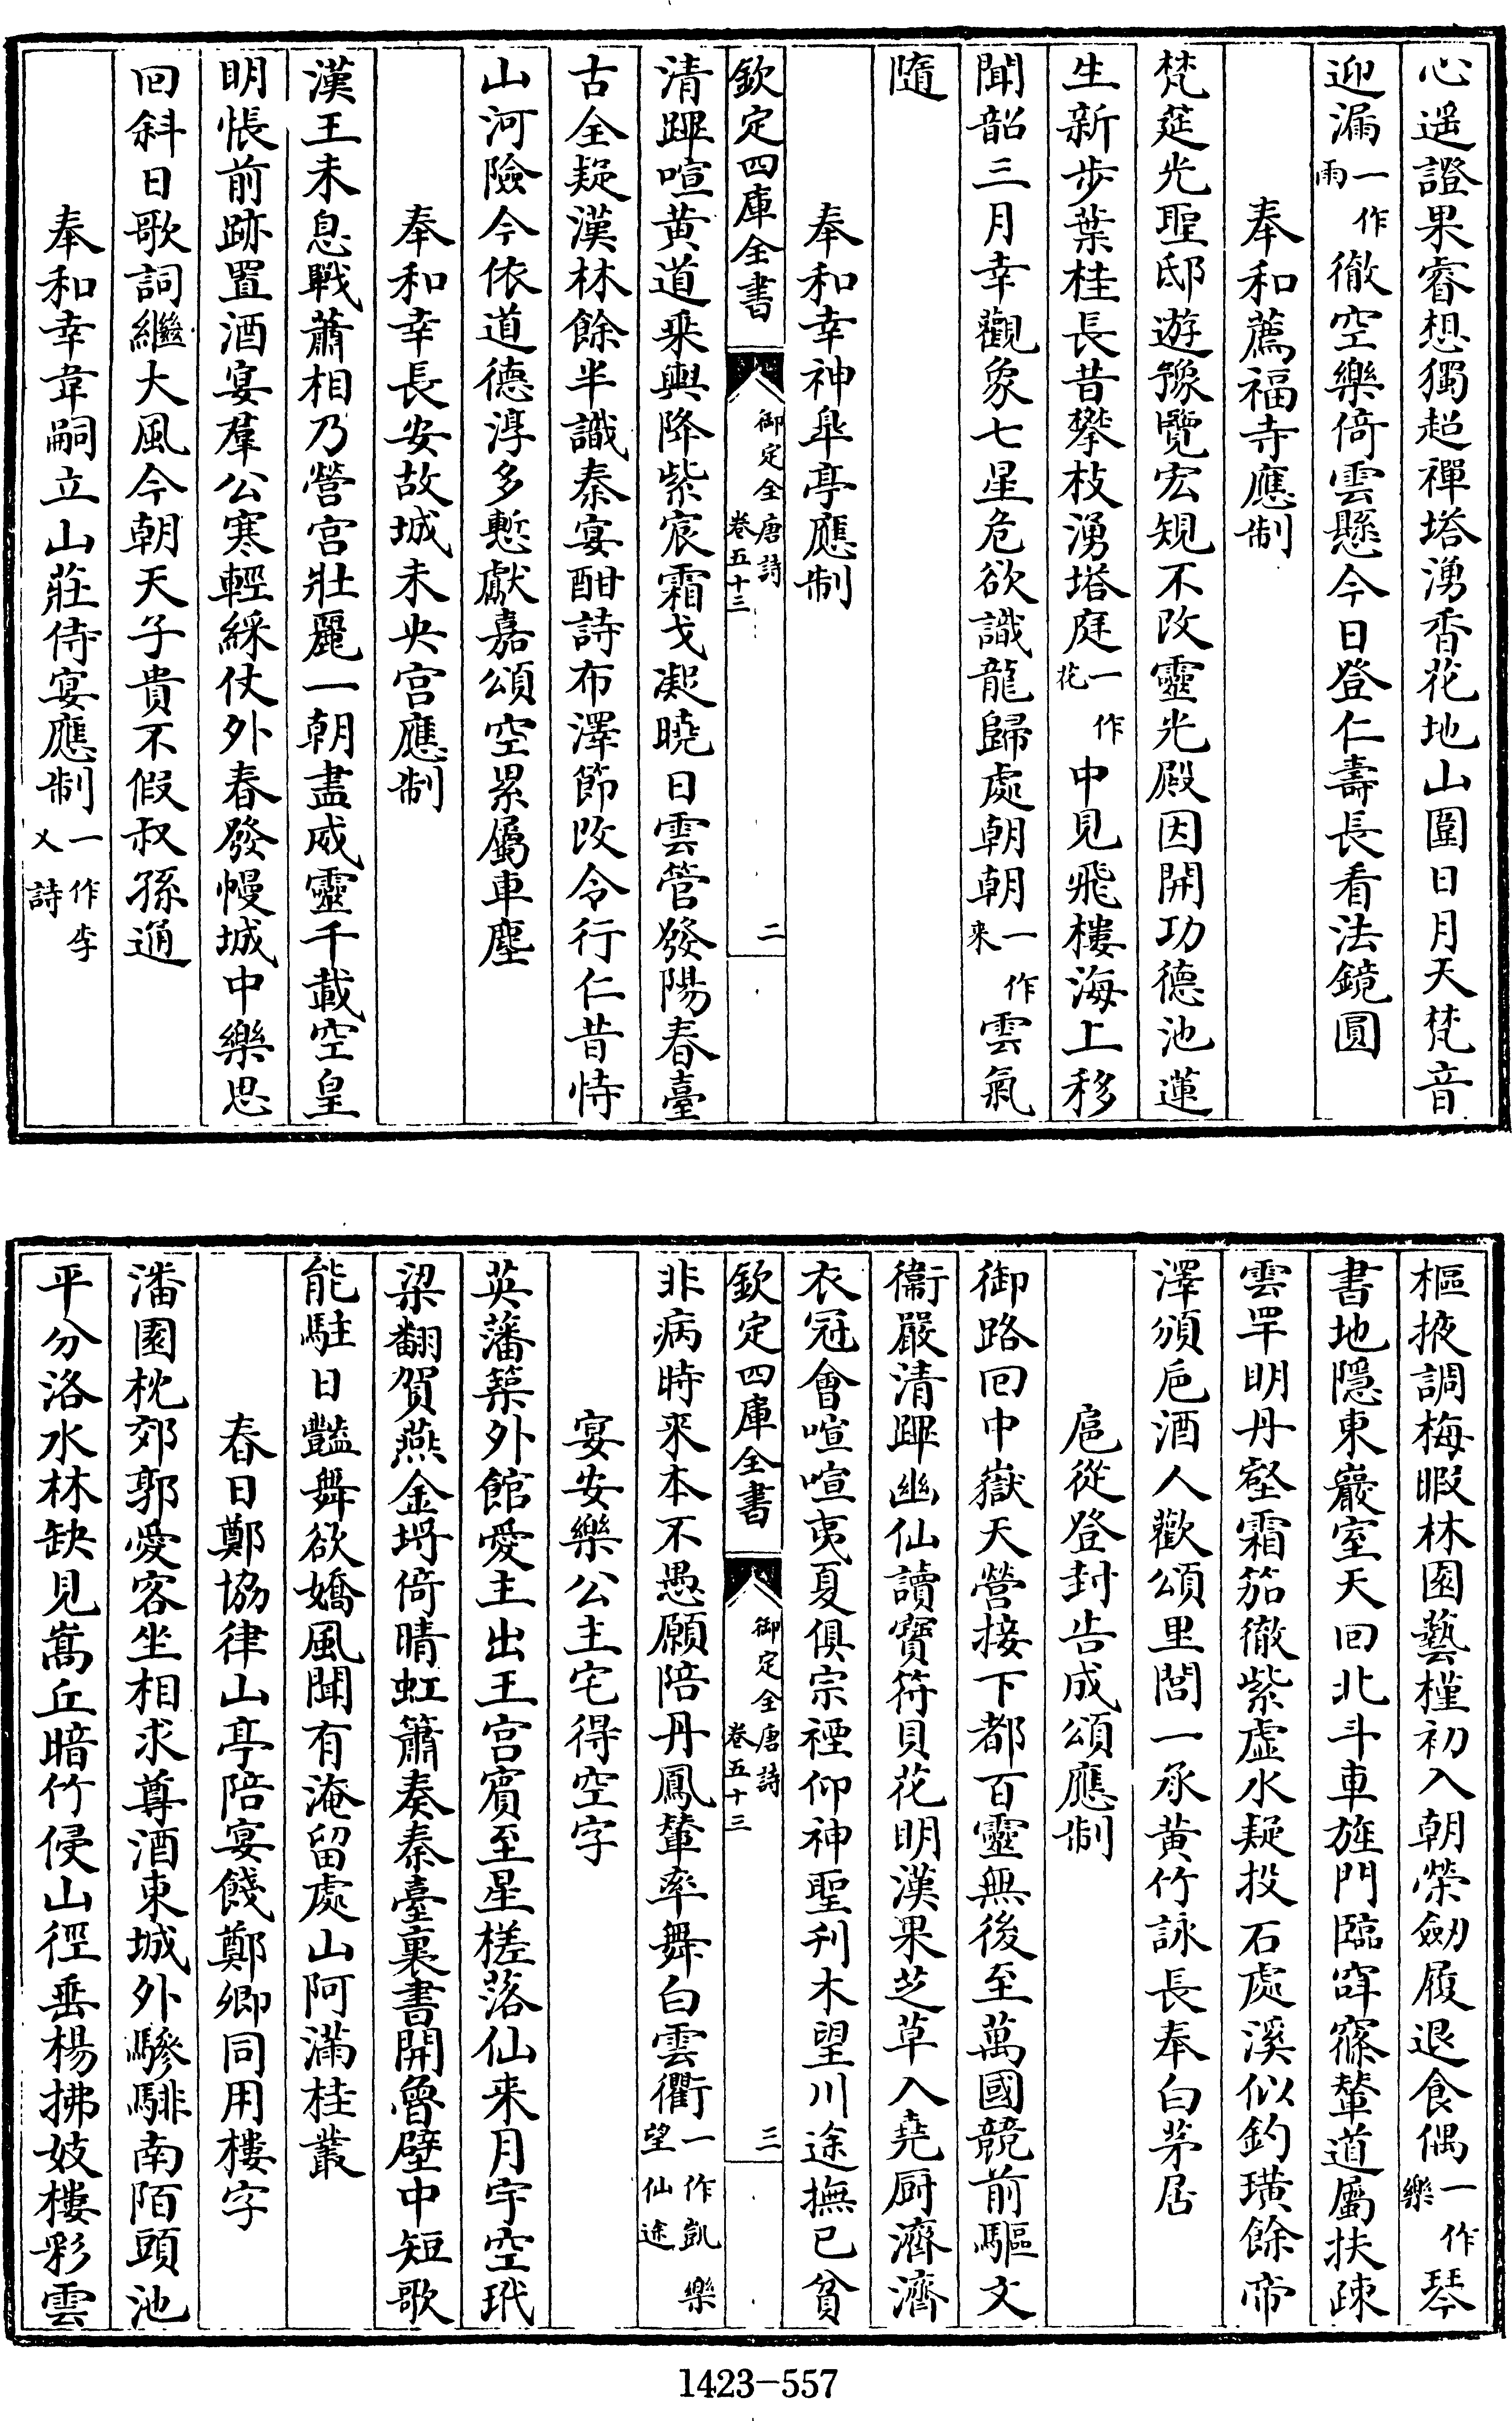 心遥證果睿想獨超禪塔湧香花地山圍日月天梵音
迎漏一作雨徹空樂倚雲懸今日登仁壽長看法鏡圓
奉和薦福寺應制
梵筵光聖邸遊豫覽宏規不改靈光殿因開功德池蓮
生新步葉桂長昔攀枝湧塔庭一作花中見飛樓海上移
聞韶三月幸觀象七星危欲識龍歸處朝朝一作来雲氣
隨
奉和幸神臯亭應制
欽定四庫全書 御定全唐詩卷五十三 二
清蹕喧黄道乗輿降紫宸霜戈凝曉日雲管發陽春臺
古全疑漢林餘半識秦宴酣詩布澤節改令行仁昔恃
山河險今依道德淳多慙獻嘉頌空累屬車塵
奉和幸長安故城未央宫應制
漢王未息戰蕭相乃營宫壯麗一朝盡威靈千載空皇
明悵前跡置酒宴羣公寒輕綵仗外春發幔城中樂思
回斜日歌詞繼大風今朝天子貴不假叔孫通
奉和幸韋嗣立山莊侍宴應制一作李乂詩
樞掖調梅暇林園藝槿初入朝榮劒履退食偶一作樂琴
書地隱東巖室天回北斗車旌門臨窂窱輦道屬扶疎
雲罕明丹壑霜笳徹紫虚水疑投石處溪似釣璜餘帝
澤頒巵酒人歡頌里閭一承黄竹詠長奉白茅居
扈從登封告成頌應制
御路回中嶽天營接下都百靈無後至萬國競前驅文
衞嚴清蹕幽仙讀寶符貝花明漢果芝草入堯厨濟濟
衣冠會喧喧夷夏俱宗禋仰神聖刋木望川途撫已貧
欽定四庫全書 御定全唐詩卷五十三 三
非病時来本不愚願陪丹鳳輦率舞白雲衢一作凱樂望仙途
宴安樂公主宅得空字
英藩築外館愛主出王宫賓至星槎落仙来月宇空玳
梁翻賀燕金埒倚晴虹簫奏秦臺裏書開魯壁中短歌
能駐日豔舞欲嬌風聞有淹留處山阿滿桂叢
春日鄭協律山亭陪宴餞鄭卿同用樓字
潘園枕郊郭愛客坐相求尊酒東城外驂騑南陌頭池
平分洛水林缺見嵩丘暗竹侵山徑垂楊拂妓樓彩雲
1423-557